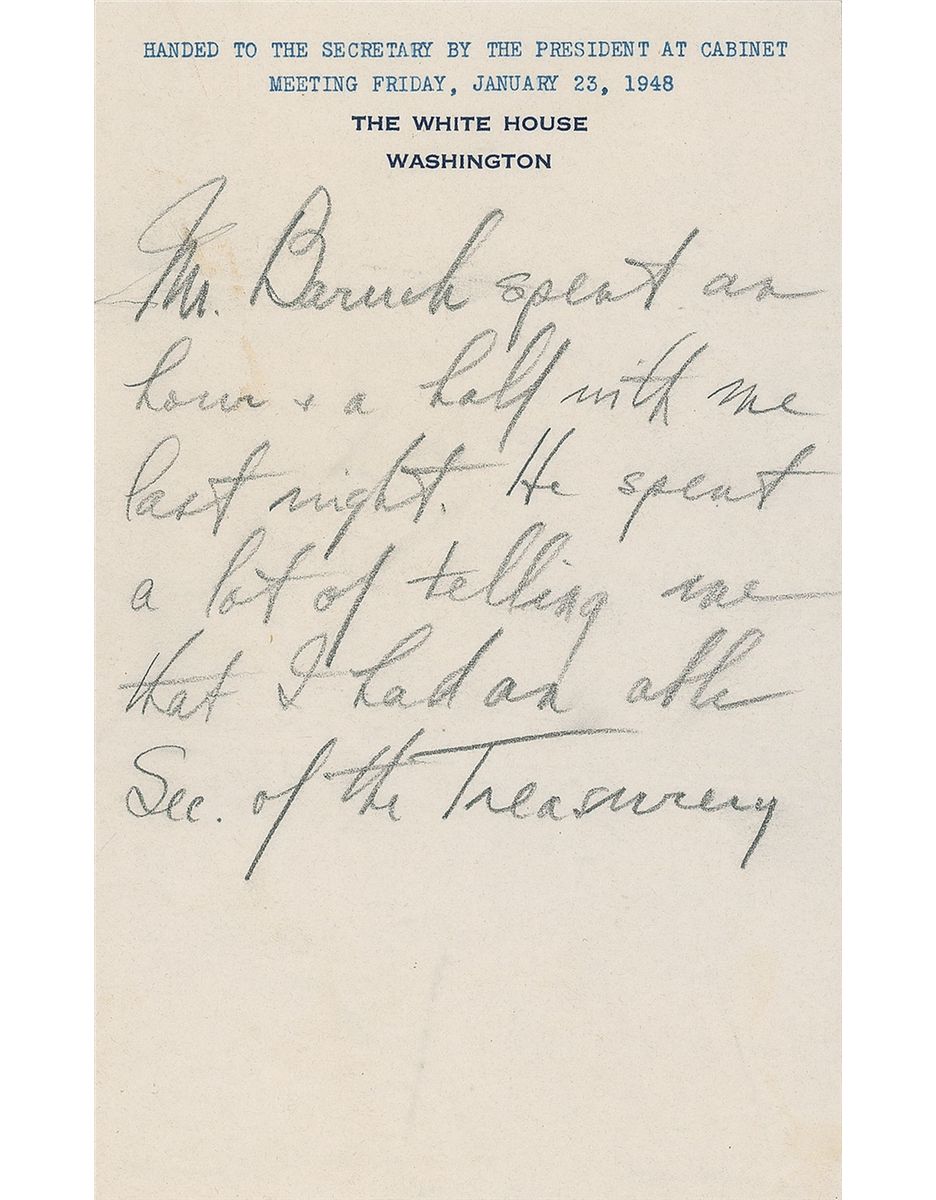 HANDED TO THE SECRETARY BY THE PRESIDENT AT CABINET
MEETING FRIDAY, JANUARY 23, 1948
THE WHITE HOUSE
WASHINGTON
Mr. Baruch spent an
hour + a half with me
last night. He spent
a lot of telling me
that I had an able
Sec. of the Treasurery